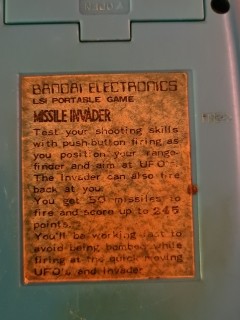 BANDAI ELECTRONICS
LSI PORTABLE GAME
MISSILE INVADER
Test your shooting skills
with push-button firing as
you position your range-
finder and aim at UFO's!
The Invader can also fire
back at you.
You get 50 missiles to
fire and score up to 245
points.
You'll be working fast to
avoid being bombed while
firing at the quick moving
UFO's and Invader